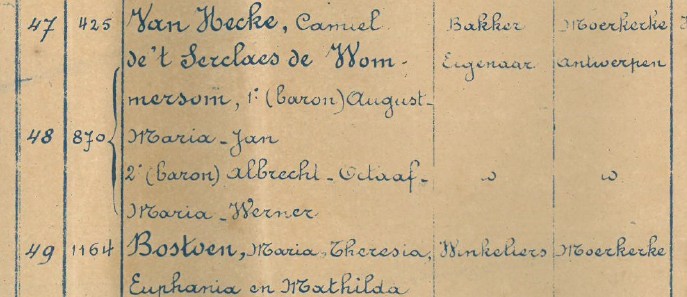 47 425 Van Hecke, Camiel Bakker Moerkerke
de 't Serclaes de Wom- Eigenaar Antwerpen
mersom, 1° (baron) August-
48 870 Maria-Jan
2° (baron) Albrecht-Octaaf- " "
Maria-Werner
49 1164 Bostoen, Maria, Theresia, Winkeliers Moerkerke
Euphania en Mathilda